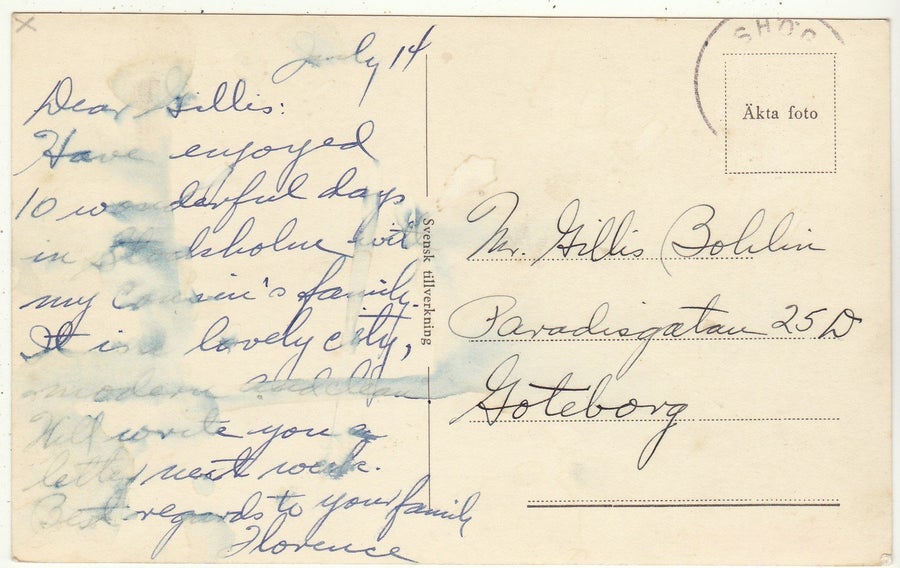 July 14
Dear Gillis:
Have enjoyed
10 wonderful days
in Stocksholm with
my cousin's family.
It is a lovely city,
modern and clean.
Will write you a
letter next week.
Best regards to your family
Florence
Svensk tillverkning
Äkta foto
Mr. Gillis Bohlin
Paradisgatan 25 D
Goteborg